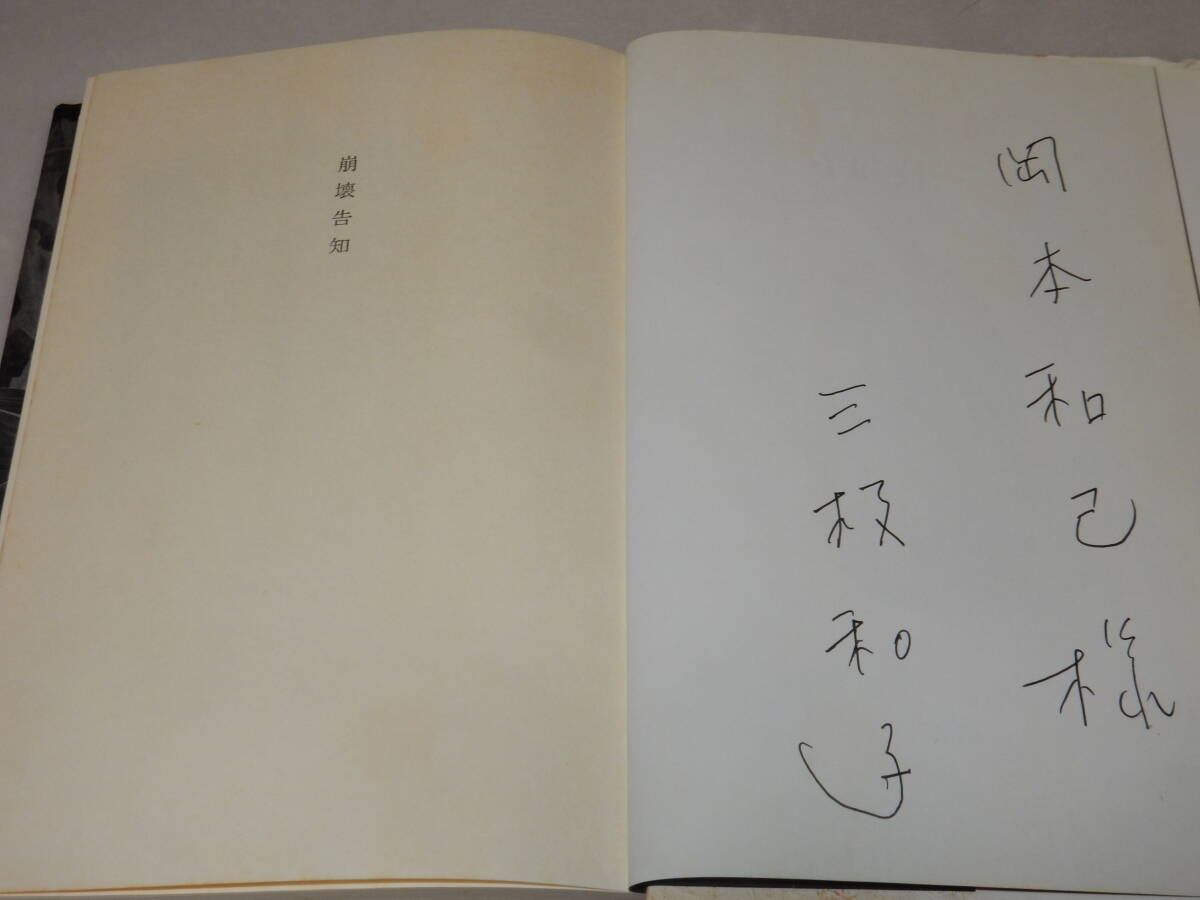 岡本和己様
三枝和子
崩壊告知